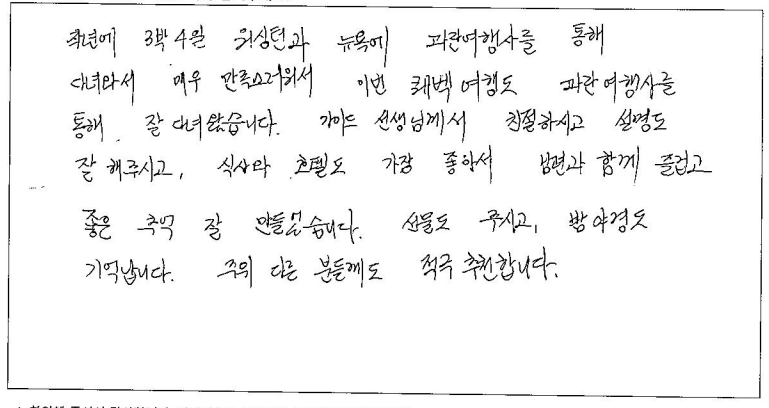 작년에 3박 4일 워싱턴과 뉴욕에 파란여행사를 통해
다녀와서 매우 만족스러워서 이번 퀘벡 여행도 파란여행사를
통해 잘 다녀왔습니다. 가이드 선생님께서 친절하시고 설명도
잘 해주시고, 식사와 호텔도 가장 좋아서 남편과 함께 즐겁고
좋은 추억 잘 만들었습니다. 선물도 주시고, 밤야경도
기억납니다. 주위 다른 분들께도 적극 추천합니다.